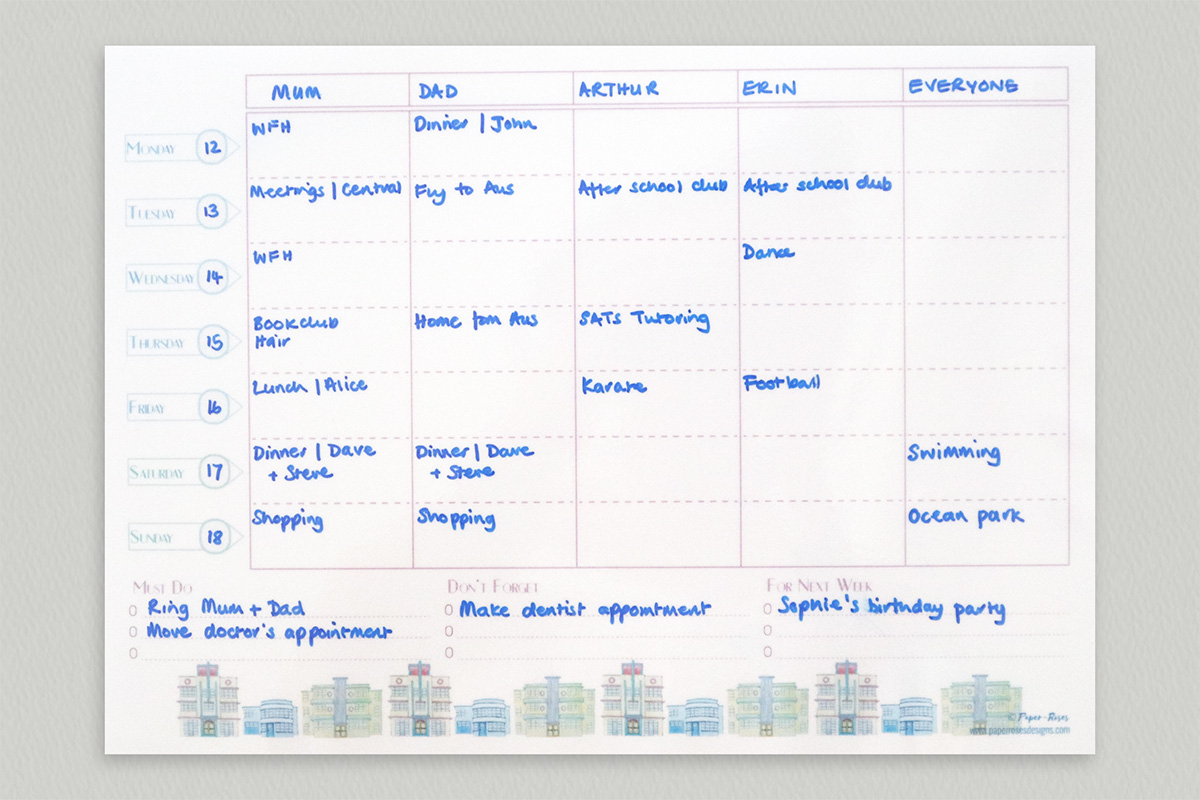 MUM DAD ARTHUR ERIN EVERYONE
MONDAY 12 WFH Dinner | John
TUESDAY 13 Meetings | Central Fly to Aus After school club After school club
WEDNESDAY 14 WFH Dance
THURSDAY 15 Bookclub Home from Aus SATs Tutoring
Hair
FRIDAY 16 Lunch | Alice Karate Football
SATURDAY 17 Dinner | Dave Dinner | Dave Swimming
+ Steve + Steve
SUNDAY 18 Shopping Shopping Ocean park
MUST DO DON'T FORGET FOR NEXT WEEK
Ring Mum + Dad Make dentist appointment Sophie's birthday party
Move doctor's appointment
© Paper-Roses
www.paperrosesdesigns.com